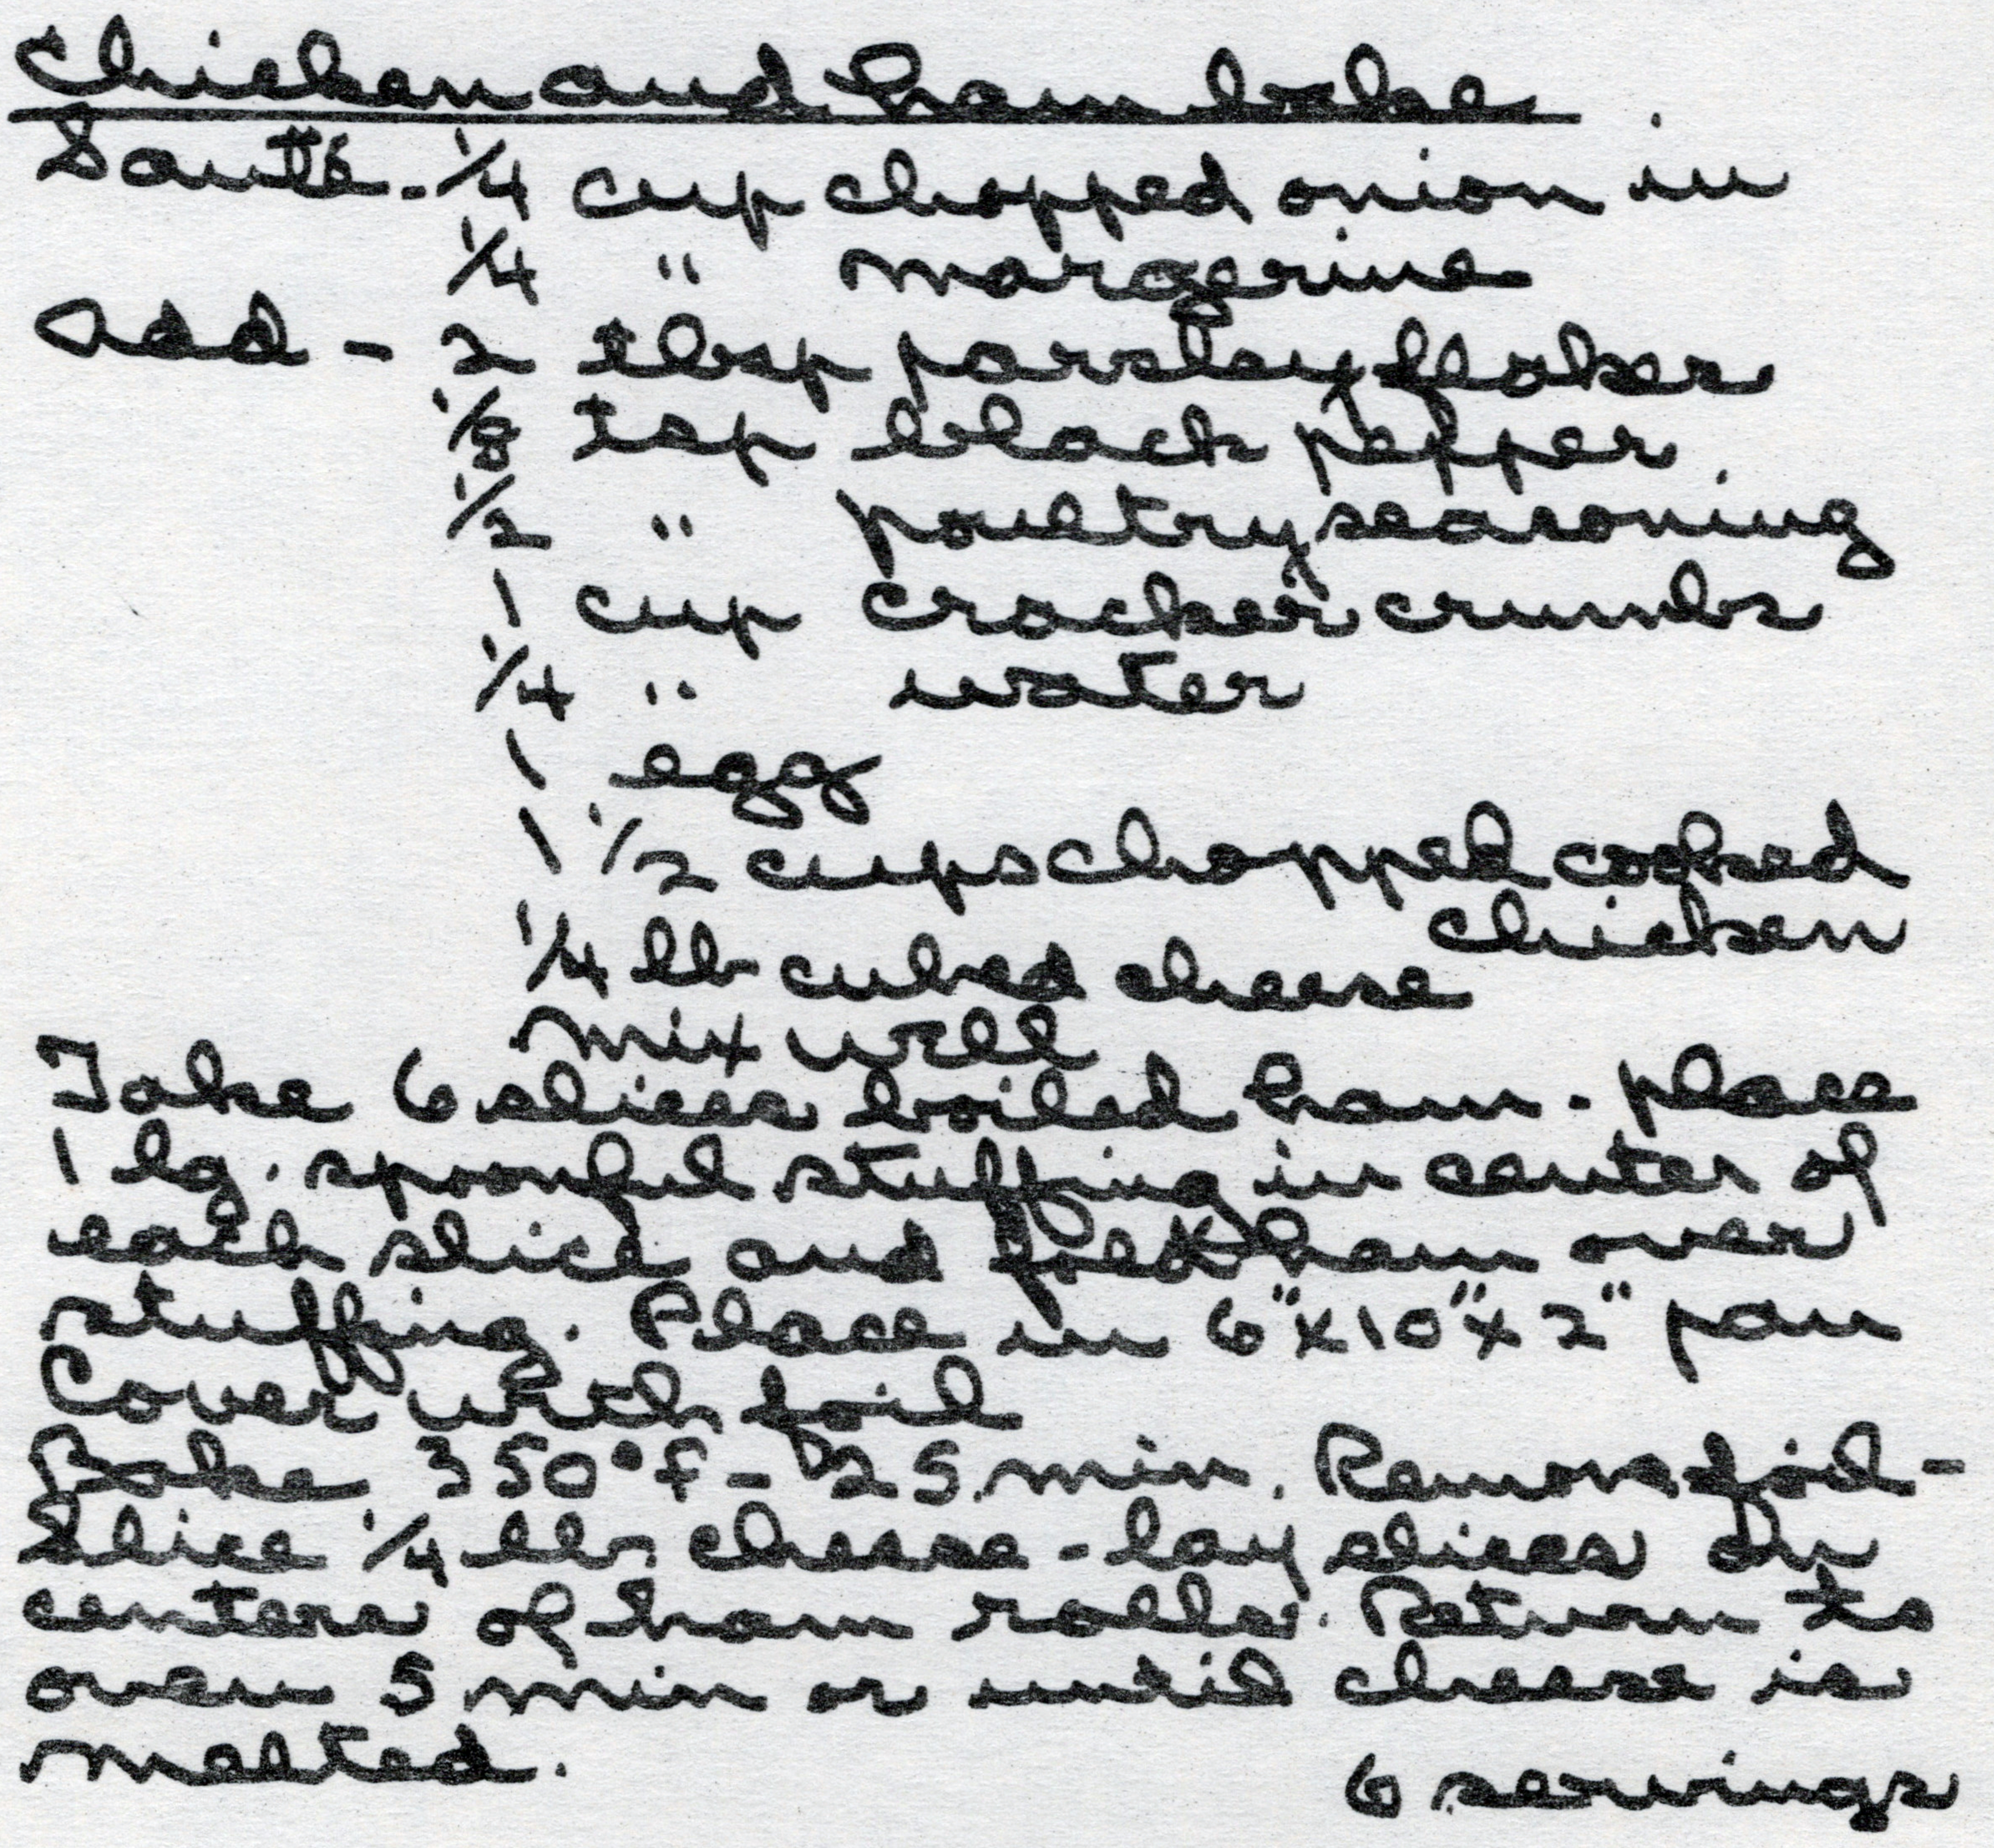 Chicken and ham bake
Sauté - 1/4 cup chopped onion in
1/4 " margerine
Add - 2 tbsp parsley flakes
1/8 tsp black pepper
1/2 " poultry seasoning
1 cup cracker crumbs
1/4 " water
1 egg
1 1/2 cups chopped cooked
chicken
1/4 lb cubed cheese
Mix well
Take 6 slices boiled ham - place
1 lg. spoonful stuffing in center of
each slice and fold ham over
stuffing. Place in 6" x 10" x 2" pan
Cover with foil
Bake 350°F - 25 min. Remove foil -
Slice 1/4 lb. cheese - lay slices on
centers of ham rolls. Return to
oven 5 min or until cheese is
melted.
6 servings